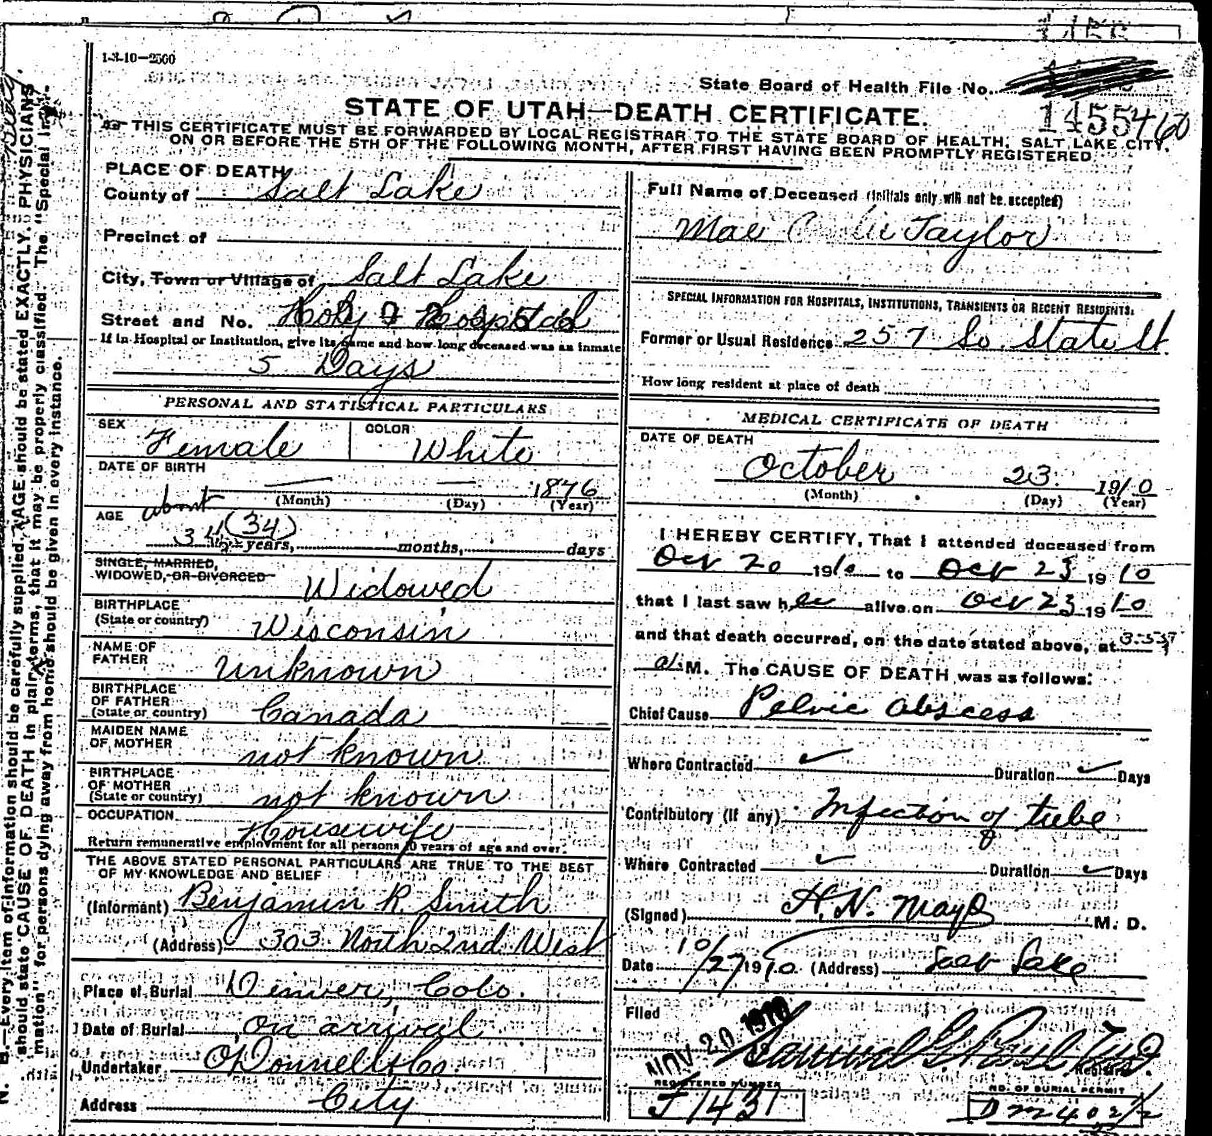 1-3-10—2500
State Board of Health File No.
STATE OF UTAH—DEATH CERTIFICATE.
1455460
THIS CERTIFICATE MUST BE FORWARDED BY LOCAL REGISTRAR TO THE STATE BOARD OF HEALTH, SALT LAKE CITY,
ON OR BEFORE THE 5TH OF THE FOLLOWING MONTH, AFTER FIRST HAVING BEEN PROMPTLY REGISTERED
PLACE OF DEATH
County of Salt Lake
Precinct of
City, Town or Village of Salt Lake
Street and No. Holy Hospital
If in Hospital or Institution, give its name and how long deceased was an inmate
5 Days
PERSONAL AND STATISTICAL PARTICULARS
SEX Female COLOR White
DATE OF BIRTH
1876
(Month) (Day) (Year)
about
AGE 34 (34) years, months, days
SINGLE, MARRIED,
WIDOWED, OR DIVORCED Widowed
BIRTHPLACE
(State or country) Wisconsin
NAME OF
FATHER unknown
BIRTHPLACE
OF FATHER
(State or country) Canada
MAIDEN NAME
OF MOTHER not known
BIRTHPLACE
OF MOTHER
(State or country) not known
OCCUPATION Housewife
Return remunerative employment for all persons 10 years of age and over.
THE ABOVE STATED PERSONAL PARTICULARS ARE TRUE TO THE BEST
OF MY KNOWLEDGE AND BELIEF
(Informant) Benjamin R. Smith
(Address) 303 North 2nd West
Place of Burial Denver, Colo.
Date of Burial on arrival
Undertaker O'Donnell & Co
Address City
Full Name of Deceased (Initials only will not be accepted)
Mae Taylor
SPECIAL INFORMATION FOR HOSPITALS, INSTITUTIONS, TRANSIENTS OR RECENT RESIDENTS:
Former or Usual Residence 257 So. State St.
How long resident at place of death
MEDICAL CERTIFICATE OF DEATH
DATE OF DEATH
October 23 1910
(Month) (Day) (Year)
I HEREBY CERTIFY, That I attended deceased from
Oct 20 1910 to Oct 23 1910
that I last saw her alive on Oct 23 1910
and that death occurred, on the date stated above, at
a. M. The CAUSE OF DEATH was as follows:
Chief Cause Pelvic Abscess
Where Contracted ✓ Duration ✓ Days
Contributory (if any) Infection of tube
Where Contracted ✓ Duration ✓ Days
(Signed) H. N. Mayo M. D.
Date 10/27 1910 (Address) Salt Lake
Filed
NOV 20 1910
Samuel G. Paul
Registrar
REGISTERED NUMBER
J1431
NO. OF BURIAL PERMIT
N. B.—Every item of information should be carefully supplied. AGE should be stated EXACTLY. PHYSICIANS
should state CAUSE OF DEATH in plain terms, that it may be properly classified. The "Special Infor-
mation" for persons dying away from home should be given in every instance.